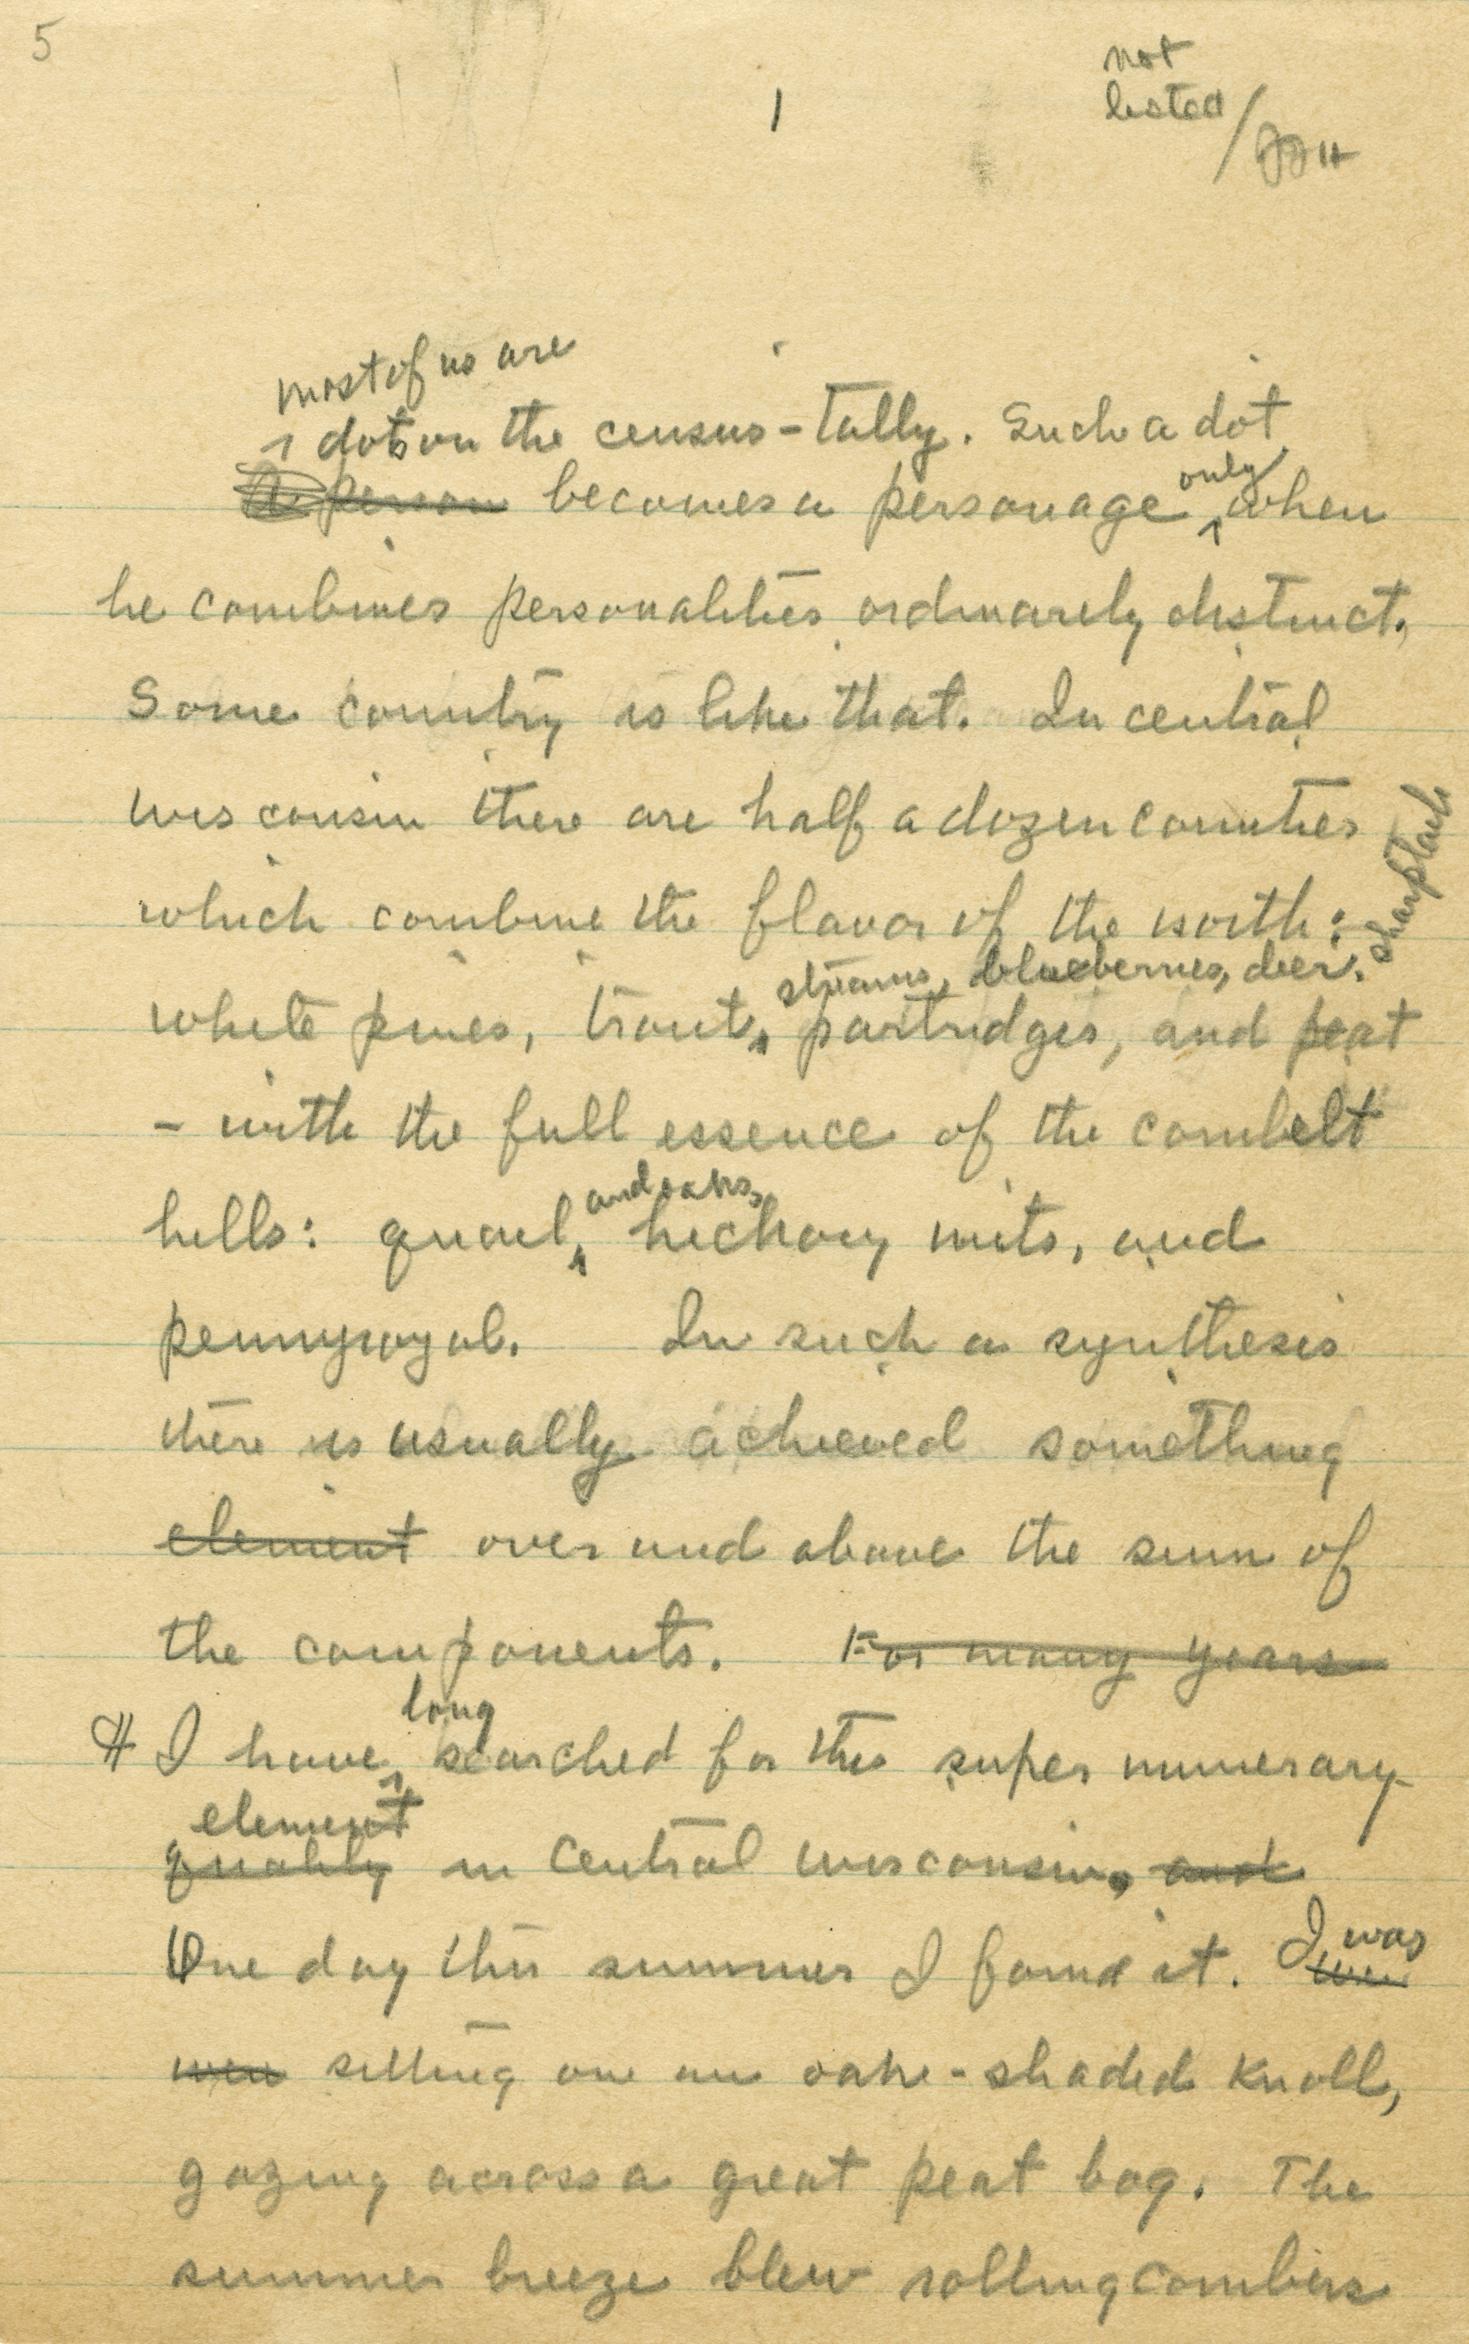 5
not
listed
1
most of us are
dots on the census-tally. Such a dot
A person becomes a personage only when
he combines personalities ordinarily distinct.
Some country is like that. In central
Wisconsin there are half a dozen counties
which combine the flavor of the north:
sharptails
streams, blueberries, deer,
white pines, trout, partridges, and peat
- with the full essence of the cornbelt
and oaks,
hills: quail, hickory nuts, and
pennyroyal. In such a synthesis
there is usually achieved something
element over and above the sum of
the components. For many years
long
I have searched for this super numerary
element
quality in Central Wisconsin, and
One day this summer I found it. I was
sitting on an oake-shaded knoll,
gazing across a great peat bog. The
summer breeze blew rolling combers